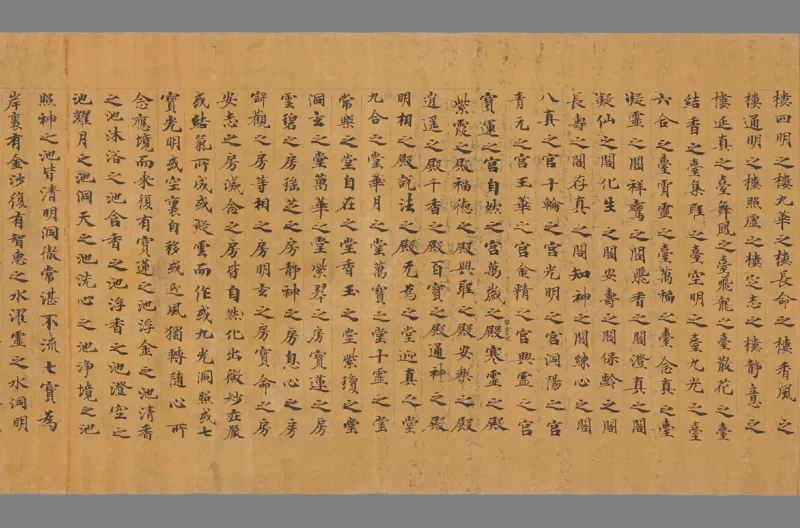 樓四明之樓九華之樓長命之樓香風之
樓通明之樓照虛之樓定志之樓靜意之
樓延真之臺舞鳳之臺飛龍之臺散花之臺
結香之臺集聖之臺空明之臺九光之臺
六合之臺霄靈之臺萬福之臺念真之臺
凝靈之閣祥鸞之閣飛香之閣澄真之閣
凝仙之閣化生之閣安壽之閣保齡之閣
長壽之閣存真之閣知神之閣練心之閣
八真之宮十輪之宮光明之宮洞陽之宮
青元之宮玉華之宮金精之宮興靈之宮
寶運之宮自然之宮萬歲之殿寒靈之殿
紫霞之殿福德之殿興聖之殿安樂之殿
逍遙之殿千香之殿百寶之殿通神之殿
明相之殿說法之殿无為之堂迎真之堂
九合之堂華月之堂萬寶之堂十靈之堂
常樂之堂自在之堂香玉之堂紫瓊之堂
洞玄之堂萬華之堂紫琴之房寶蓮之房
雲碧之房瑤芝之房靜神之房息心之房
辭觀之房等相之房明玄之房寶命之房
安志之房滅念之房皆自然化出微妙莊嚴
或結氣所成或凝雲而作或九光洞照或七
寶光明或空裏自移或近風獨轉隨心所
念應境而來復有寶蓮之池浮金之池清香
之池沐浴之池含香之池浮香之池澄空之
池耀月之池洞天之池洗心之池淨境之池
照神之池皆清明洞徹常湛不流七寶為
岸裏有金沙復有智惠之水濯靈之水洞明